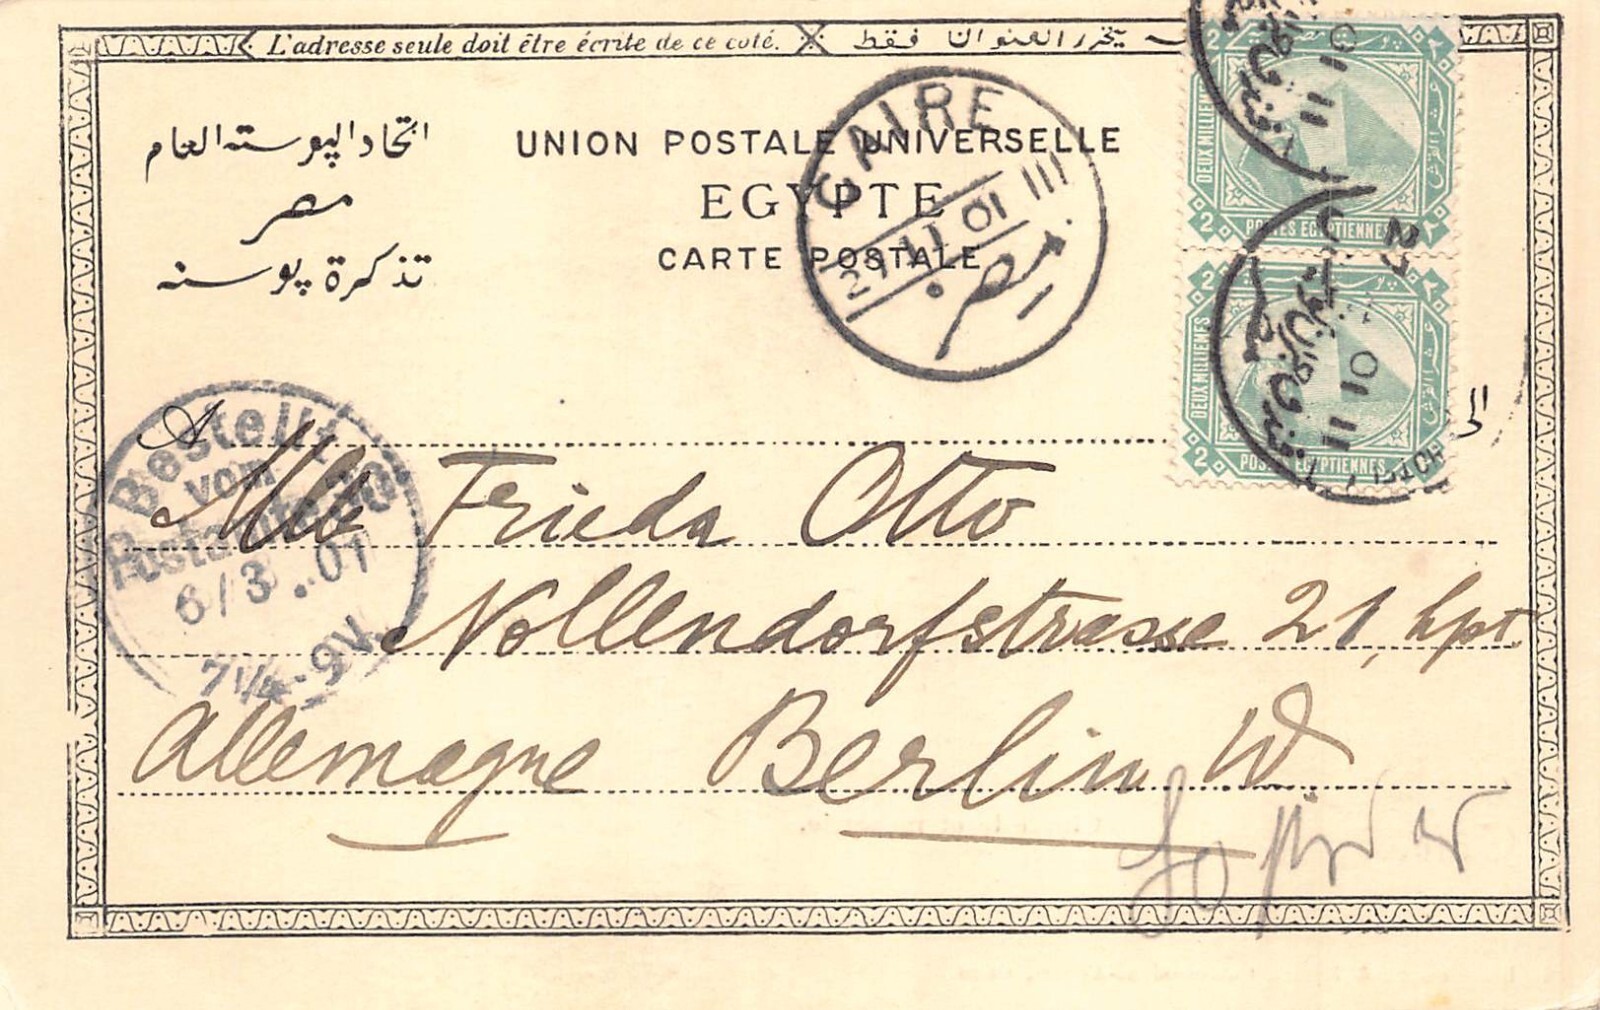 L'adresse seule doit être écrite de ce coté.
يحرر العنوان فقط
اتحاد البوسته العام
UNION POSTALE UNIVERSELLE
مصر
EGYPTE
تذكرة بوسته
CARTE POSTALE
CAIRE
27 II 01 III
مصر
2
DEUX MILLIEMES
2
POSTES EGYPTIENNES
01 II
27
2
DEUX MILLIEMES
2
POSTES EGYPTIENNES
مصر
01 II
الى
A
Bestellt
vom
Postamte 30
6/3.01
7 1/4-9V.
Mlle Frieda Otto
Nollendorfstrasse 21, hpt.
Allemagne Berlin W